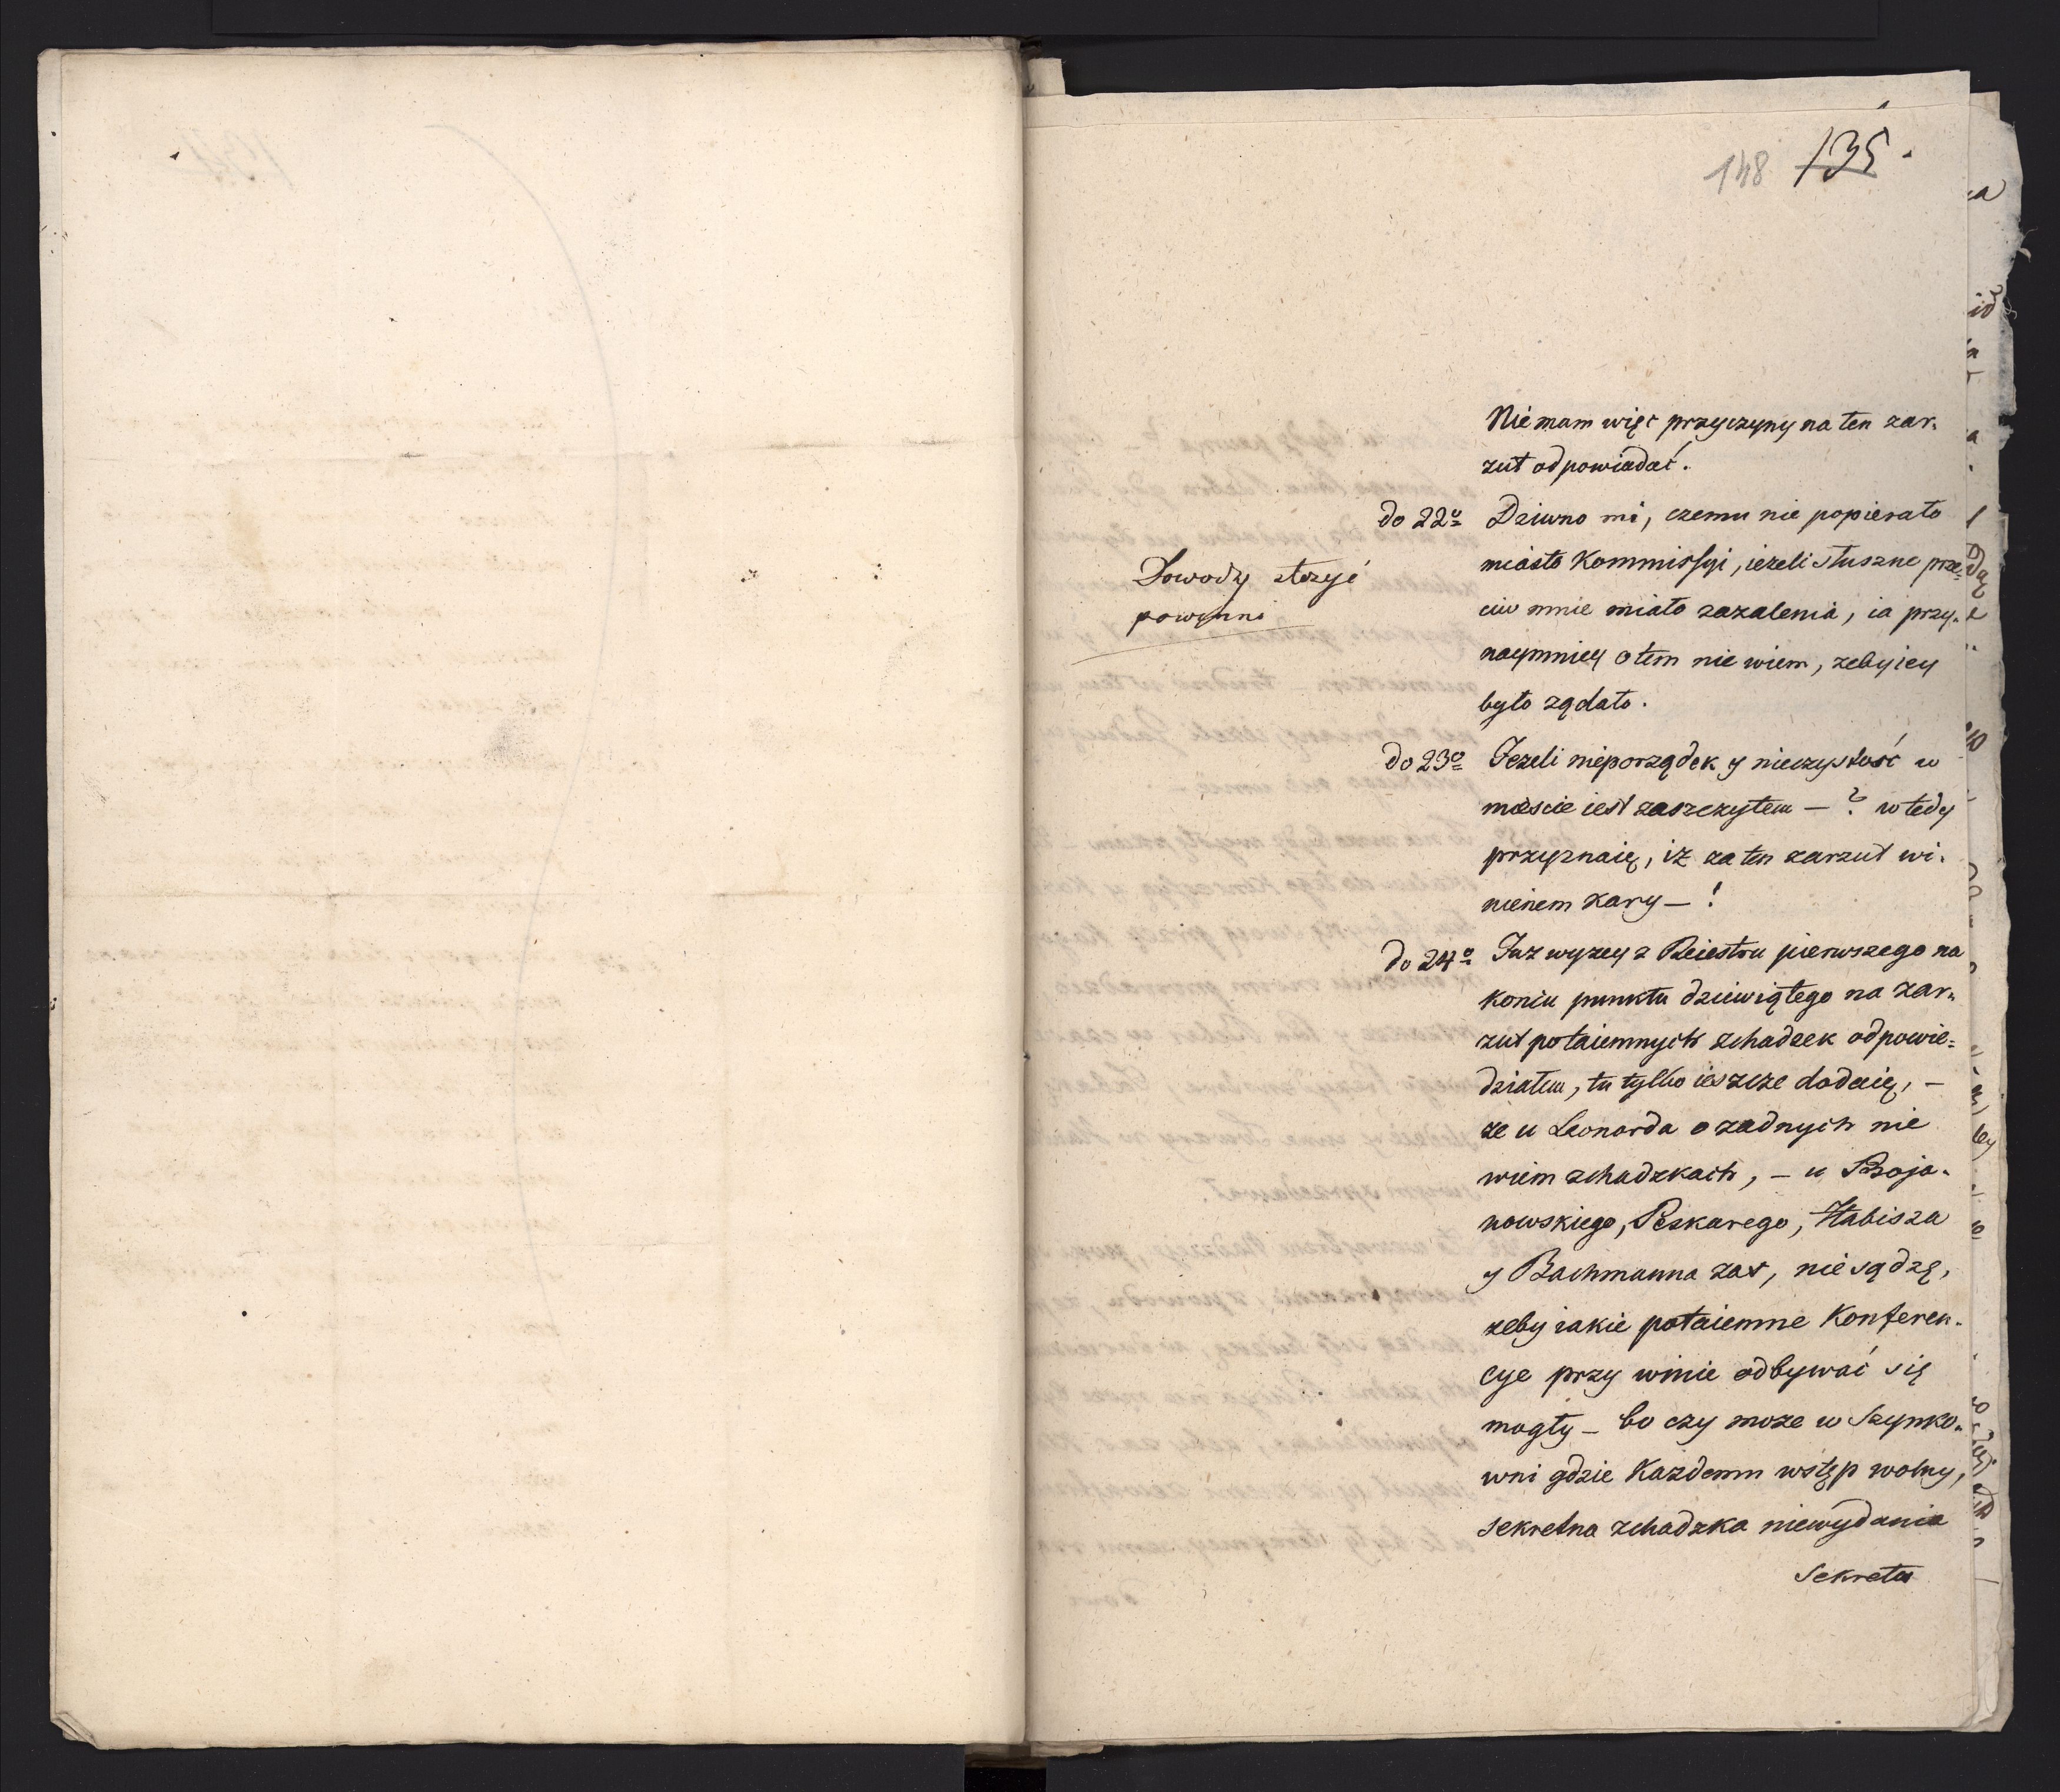 148 135.
Nie mam więc przyczyny na ten zar-
zut odpowiadać.
do 22o Dziwno mi, czemu nie popierało
miasto Kommissyi, ieżeli słuszne prze-
ciw mnie miało zazalenia, ia przy-
naymniey o tem nie wiem, zeby iey
było ządało.
Dowody złożyć
powinni
do 23o Jezeli nieporządek y nieczystość w
mieście iest zaszczytem — ? wtedy
przyznaię, iz za ten zarzut wi-
nienem kary — !
do 24o Juz wyzey z Reiestru pierwszego na
koncu punktu dziewiątego na zar-
zut potaiemnych zchadzek odpowie-
działem, tu tylko ieszcze dodaię, —
ze u Leonarda o zadnych nie
wiem zchadzkach, — u Boja-
nowskiego, Peskarego, Habisza
y Bachmanna zas, nie sądzę,
zeby iakie potaiemne Konferen-
cye przy winie odbywać się
mogły — bo czy moze w Szynko-
wni gdzie Kazdemu wstęp wolny,
sekretna zchadzka niewydania
Sekretu